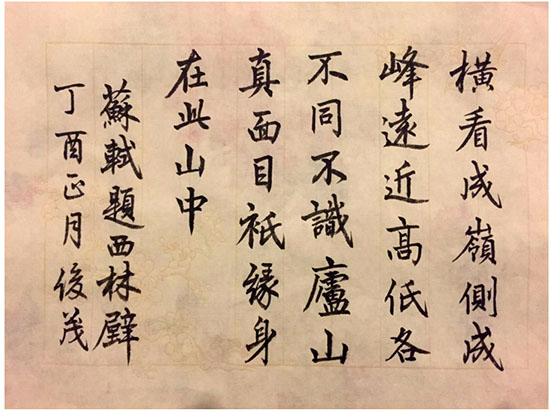 橫看成嶺側成
峰遠近高低各
不同不識廬山
真面目衹緣身
在此山中
蘇軾題西林壁
丁酉正月俊茂